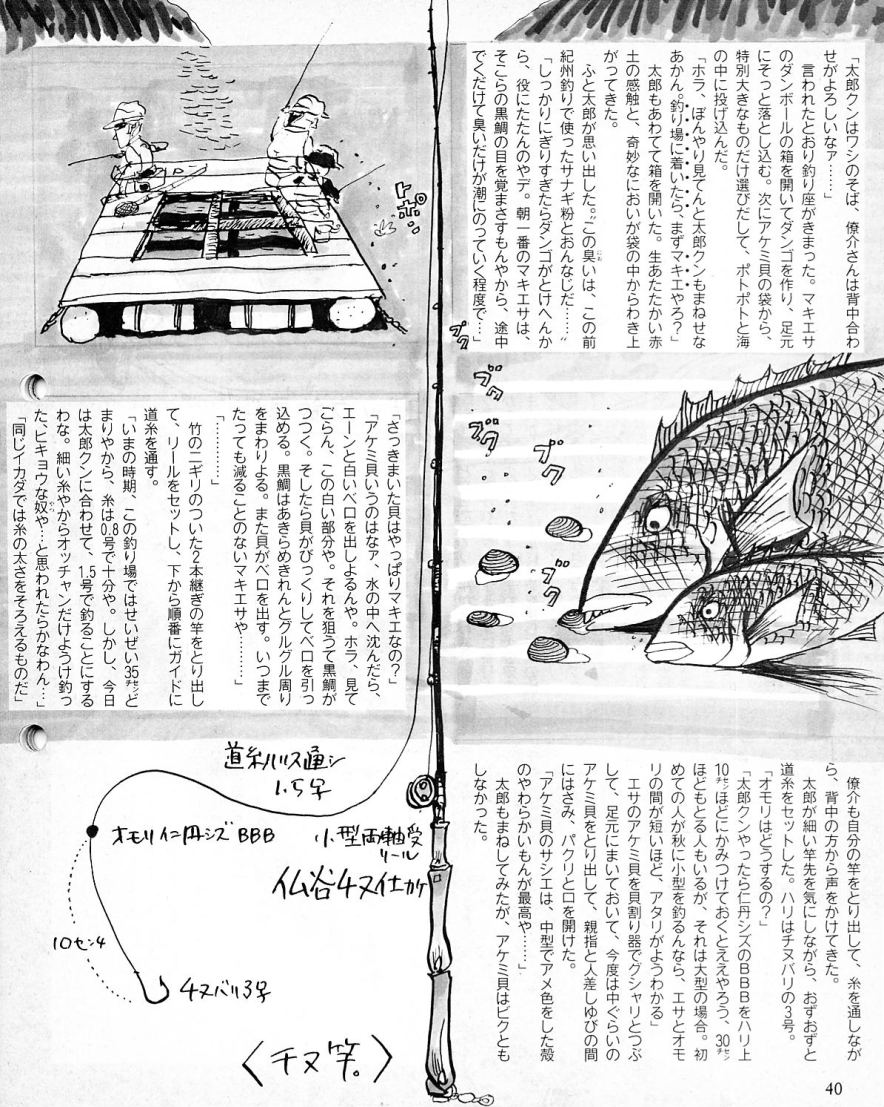 「太郎クンはワシのそば、僚介さんは背中合わ
せがよろしいなァ……」
　言われたとおり釣り座がきまった。マキエサ
のダンボールの箱を開いてダンゴを作り、足元
にそっと落とし込む。次にアケミ貝の袋から、
特別大きなものだけ選びだして、ポトポトと海
の中に投げ込んだ。
「ホラ、ぼんやり見てんと太郎クンもまねせな
あかん。釣り場に着いたら、まずマキエやろ？」
　太郎もあわてて箱を開いた。生あたたかい赤
土の感触と、奇妙なにおいが袋の中からわき上
がってきた。
　ふと太郎が思い出した。〝この臭いは、この前
紀州釣りで使ったサナギ粉とおんなじだ……〟
「しっかりにぎりすぎたらダンゴがとけへんか
ら、役にたたんのやデ。朝一番のマキエサは、
そこらの黒鯛の目を覚まさすもんやから、途中
でくだけて臭いだけが潮にのっていく程度で…」
トポ
ブク
ブク
ブク
ブク
ブク
「さっきまいた貝はやっぱりマキエなの？」
「アケミ貝いうのはなァ、水の中へ沈んだら、
エーンと白いベロを出しよるんや。ホラ、見て
ごらん、この白い部分や。それを狙うて黒鯛が
つつく。そしたら貝がびっくりしてベロを引っ
込める。黒鯛はあきらめきれんとグルグル周り
をまわりよる。また貝がベロを出す。いつまで
たっても減ることのないマキエサや…………」
「…………」
　竹のニギリのついた2本継ぎの竿をとり出し
て、リールをセットし、下から順番にガイドに
道糸を通す。
「いまの時期、この釣り場ではせいぜい35センチど
まりやから、糸は0.8号で十分や。しかし、今日
は太郎クンに合わせて、1.5号で釣ることにする
わな。細い糸やからオッチャンだけようけ釣っ
た、ヒキョウな奴や…と思われたらかなわん…」
「同じイカダでは糸の太さをそろえるものだ」
　僚介も自分の竿をとり出して、糸を通しなが
ら、背中の方から声をかけてきた。
　太郎が細い竿先を気にしながら、おずおずと
道糸をセットした。ハリはチヌバリの3号。
「オモリはどうするの？」
「太郎クンやったら仁丹シズのBBBをハリ上
10センチほどにかみつけておくとええやろう、30センチ
ほどもとる人もいるが、それは大型の場合。初
めての人が秋に小型を釣るんなら、エサとオモ
リの間が短いほど、アタリがようわかる」
　エサのアケミ貝を貝割り器でグシャリとつぶ
して、足元にまいておいて、今度は中ぐらいの
アケミ貝をとり出して、親指と人差しゆびの間
にはさみ、パクリと口を開けた。
「アケミ貝のサシエは、中型でアメ色をした殻
のやわらかいもんが最高や……」
　太郎もまねしてみたが、アケミ貝はビクとも
しなかった。
道糸ハリス通シ
1.5号
オモリ仁丹シズBBB
小型両軸受
リール
仏谷チヌ仕カケ
10センチ
チヌバリ3号
〈チヌ竿。〉
40